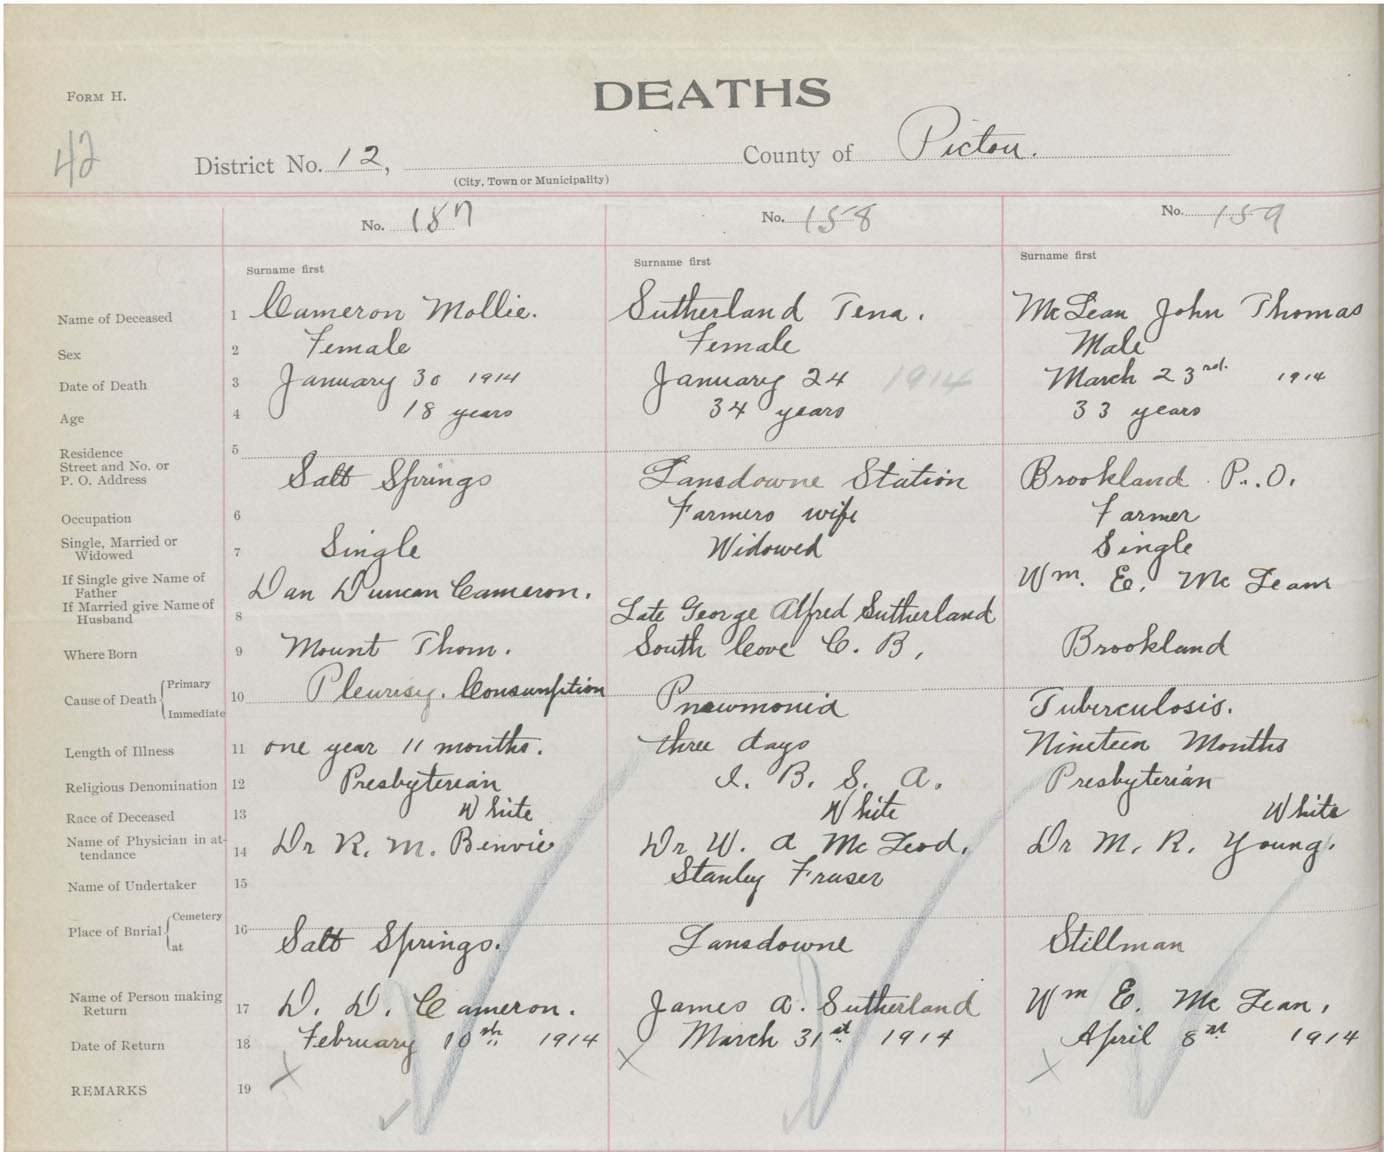 FORM H.
DEATHS
42
District No. 12, County of Pictou.
(City, Town or Municipality)
No. 157 No. 158 No. 159
Surname first Surname first Surname first
Name of Deceased 1 Cameron Mollie. Sutherland Tena. McLean John Thomas
Sex 2 Female Female Male
Date of Death 3 January 30 1914 January 24 1914 March 23rd. 1914
Age 4 18 years 34 years 33 years
Residence 5
Street and No. or
P. O. Address Salt Springs Lansdowne Station Brookland P.O.
Occupation 6 Farmers wife Farmer
Single, Married or
Widowed 7 Single Widowed Single
If Single give Name of
Father Dan Duncan Cameron. Wm. E. McLean
If Married give Name of
Husband 8 Late George Alfred Sutherland
Where Born 9 Mount Thom. South Cove C. B, Brookland
Cause of Death Primary 10 Pleurisy. Consumption Pneumonia Tuberculosis.
Immediate
Length of Illness 11 one year 11 months. three days Nineteen Months
Religious Denomination 12 Presbyterian I. B. S. A. Presbyterian
Race of Deceased 13 White White White
Name of Physician in at-
tendance 14 Dr R. M. Benvie Dr W. A McLeod. Dr M. R. Young.
Name of Undertaker 15 Stanley Fraser
Place of Burial Cemetery 16
at Salt Springs. Lansdowne Stillman
Name of Person making
Return 17 D. D. Cameron. James A. Sutherland Wm E. McLean.
Date of Return 18 February 10th 1914 March 31st 1914 April 8th 1914
REMARKS 19 x x x